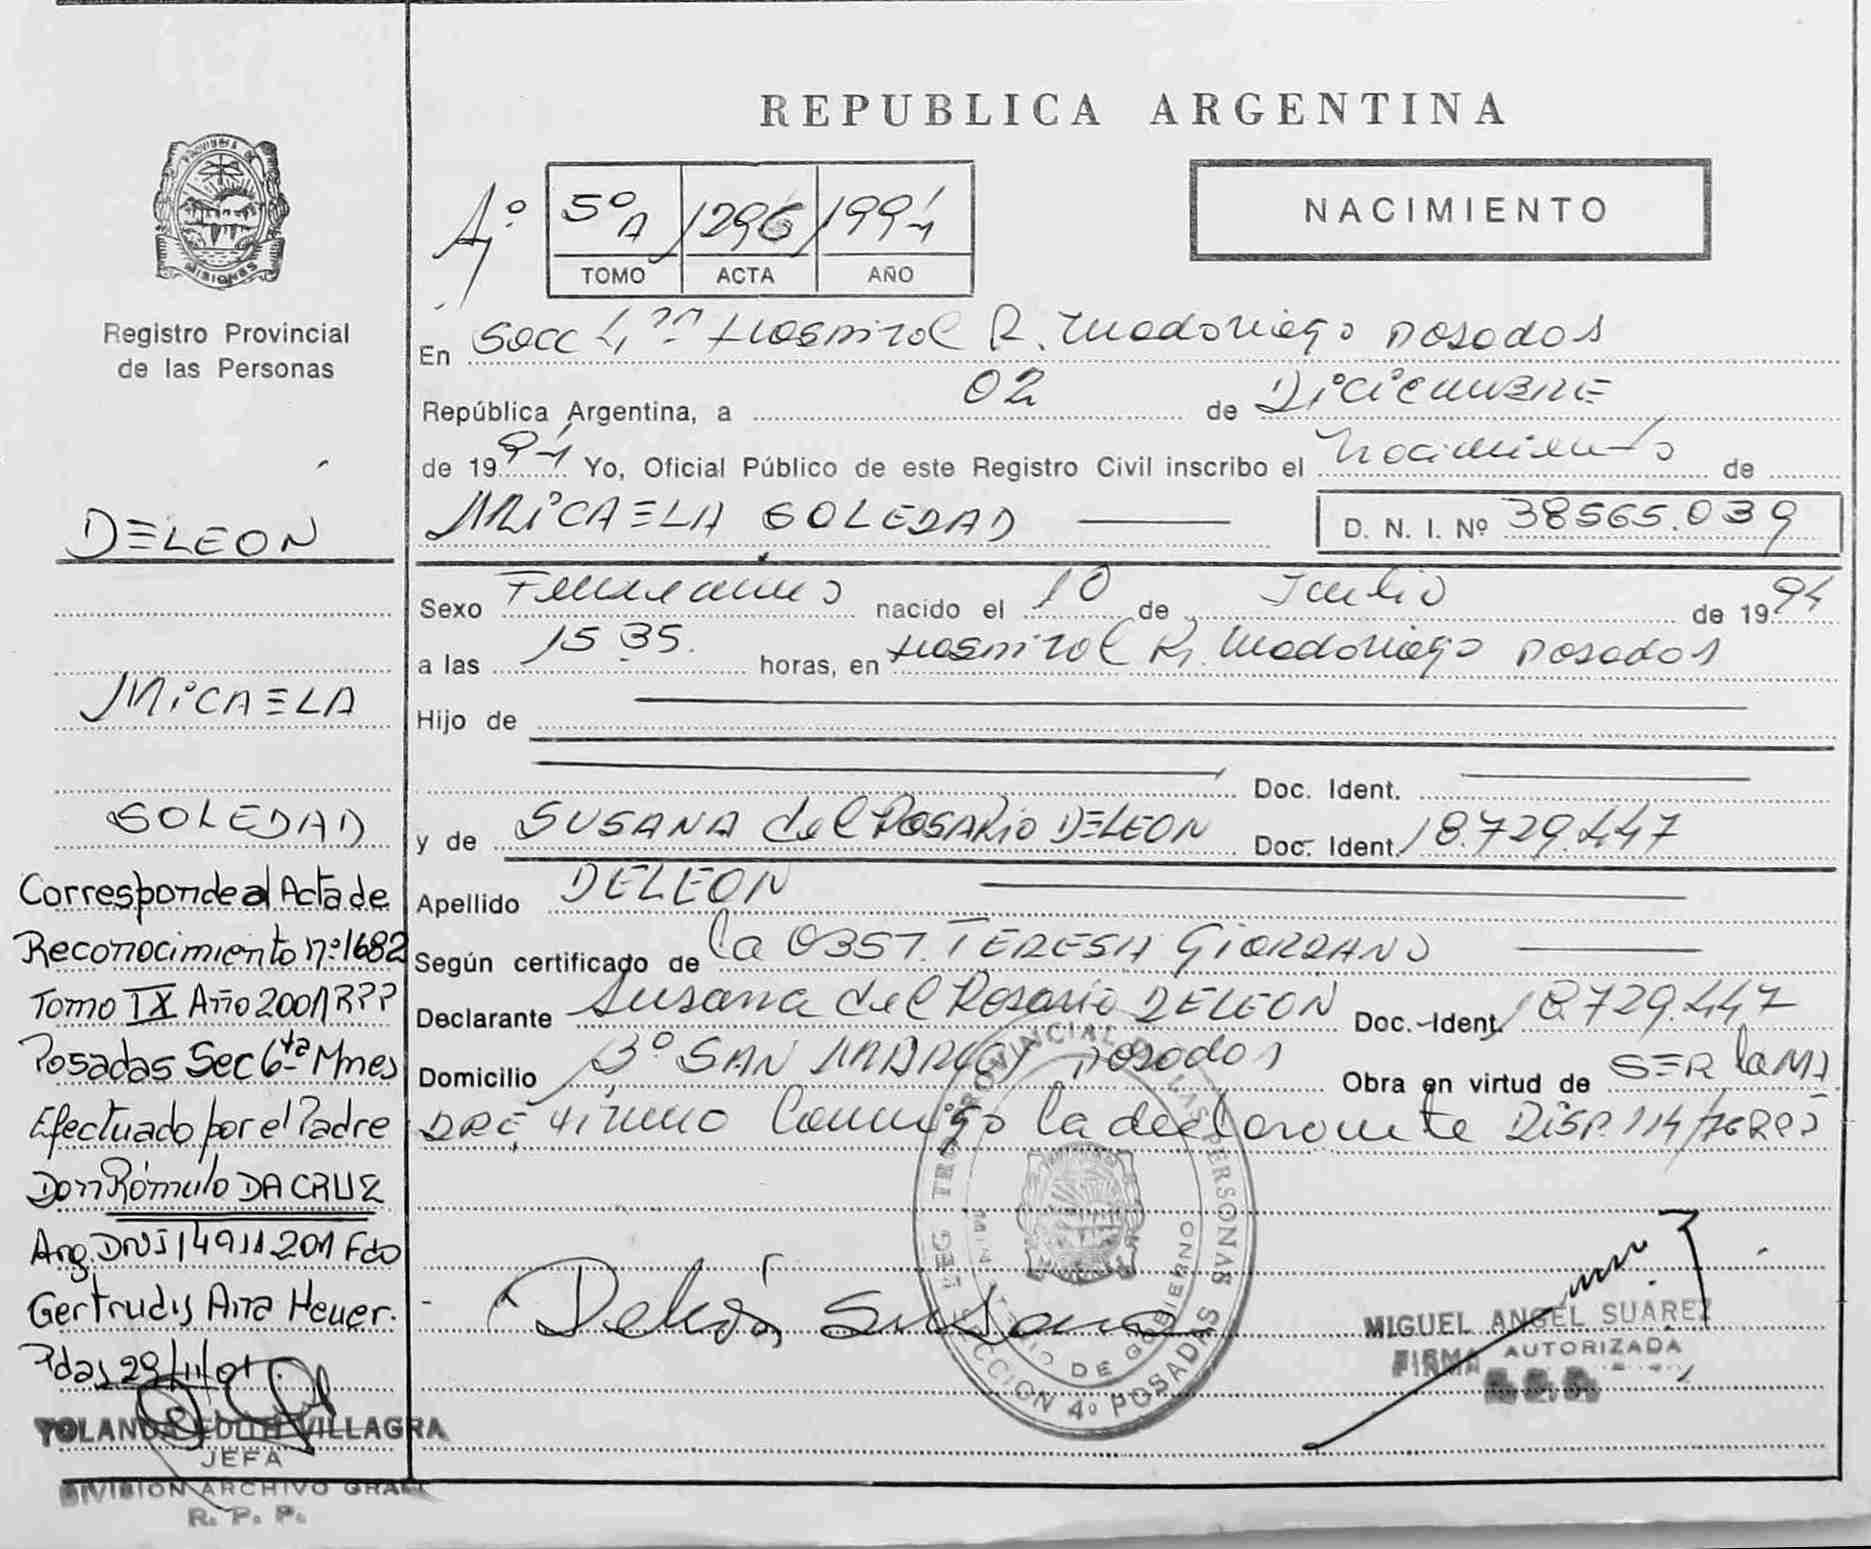 PROVINCIA DE
MISIONES
Registro Provincial
de las Personas
DELEON
MICAELA
SOLEDAD
Corresponde al Acta de
Reconocimiento nº 1682
Tomo IX Año 2001 RPP
Posadas Sec 6ta Mnes
Efectuado por el Padre
Don Rómulo DA CRUZ
Arg. DNI 14911201 Fdo
Gertrudis Ana Heuer.
Pdas 29/11/01
YOLANDA EDITH VILLAGRA
JEFA
DIVISION ARCHIVO GRAL
R. P. P.
REPUBLICA ARGENTINA
5º A 1296 1994
TOMO ACTA AÑO
NACIMIENTO
En Secc 4ta Hospital R. Madariaga Posadas
República Argentina, a 02 de DICIEMBRE
de 1994 Yo, Oficial Público de este Registro Civil inscribo el Nacimiento de
MICAELA SOLEDAD D. N. I. Nº 38565.039
Sexo Femenino nacido el 10 de Julio de 1994
a las 15 35. horas, en Hospital R. Madariaga Posadas
Hijo de
Doc. Ident.
y de SUSANA del ROSARIO DELEON Doc. Ident. 18.729.447
Apellido DELEON
Según certificado de la OBST. TERESA GIORDANO
Declarante Susana del Rosario DELEON Doc. Ident. 18.729.447
Domicilio Bº SAN MARCOS Posadas Obra en virtud de SER la MA
DRE firmo conmigo la declarante DISP. 114/76 RPP
REGISTRO PROVINCIAL DE LAS PERSONAS
MINISTERIO DE GOBIERNO
SECCION 4º POSADAS
Deleón Susana
MIGUEL ANGEL SUAREZ
FIRMA AUTORIZADA